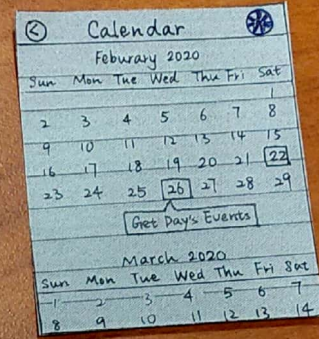 Calendar
Feburary 2020
Sun Mon Tue Wed Thu Fri Sat
1
2 3 4 5 6 7 8
9 10 11 12 13 14 15
16 17 18 19 20 21 22
23 24 25 26 27 28 29
Get Day's Events
March 2020
Sun Mon Tue Wed Thu Fri Sat
1 2 3 4 5 6 7
8 9 10 11 12 13 14